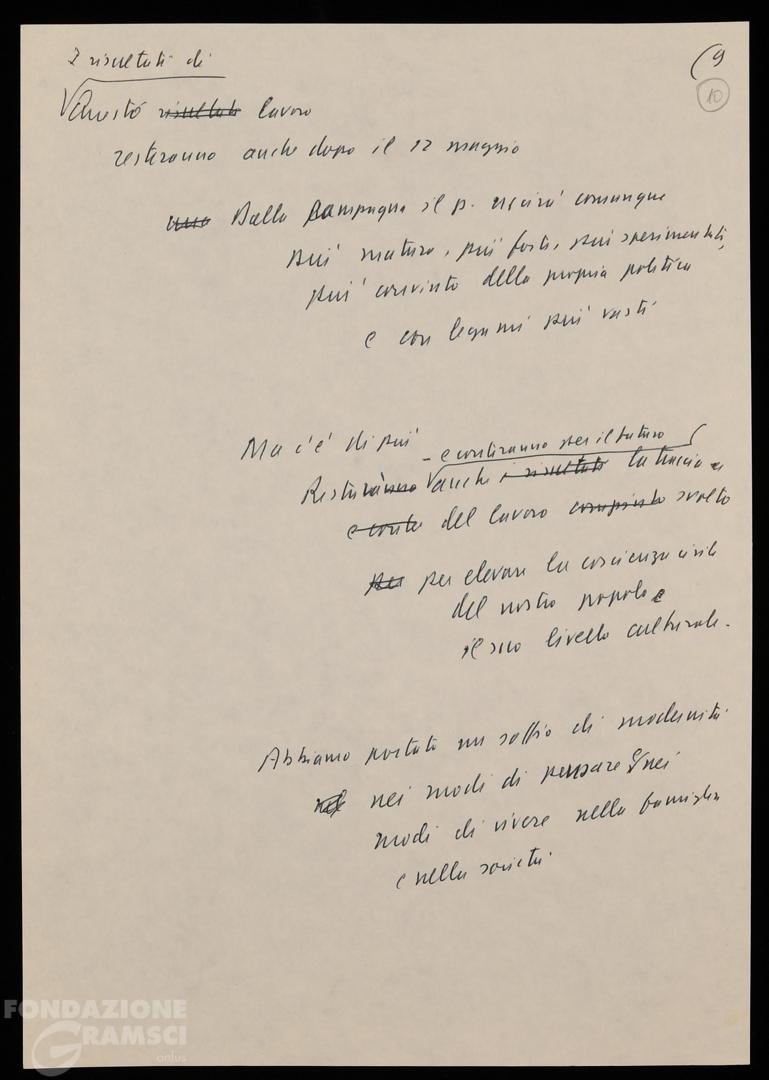 I risultati di
(9
10
Questo risultato lavoro
resteranno anche dopo il 12 maggio
una Dalla campagna il p. uscirà comunque
più maturo, più forte, più sperimentato,
più convinto della propria politica
e con legami più vasti
Ma c'è di più
e conteranno per il futuro
Resteranno anche i risultati la traccia e
e conte del lavoro compiuto svolto
per per elevare la coscienza civile
del nostro popolo e
il suo livello culturale.
Abbiamo portato un soffio di modernità
nei modi di pensare e nei
modi di vivere nella famiglia
e nella società
FONDAZIONE
GRAMSCI
onlus